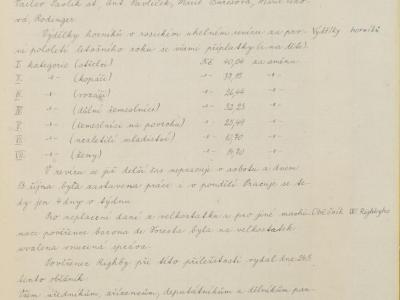 Václav Pavlík st., Ant. Pavlíček, Marie Burešová,
vá, Rodinger.
Výdělky horníků v rosickém uhelném revíru za prv- Výdělky horníků
ní pololetí letošního roku se všemi příplatky (i na děti)
I. kategorie (střelci) Kč 40,04 za směnu
II. -"- (kopáči) -"- 33,15 -"-
III. -"- (vozači) -"- 26,44 -"-
IV. -"- (důlní řemeslníci) -"- 32,25 -"-
V. -"- (řemeslníci na povrchu) -"- 25,49 -"-
VI. -"- (nezletilí mladiství) -"- 10,70 -"-
VII. -"- (ženy) -"- 14,70 -"-
V revíru se již delší čas nepracuje v sobotu a dnem
13. října byla zastavena práce i v pondělí. Pracuje se te-
dy jen 4 dny v týdnu.
Pro neplacení daní z velkostatku a pro jiné machi- Oběžník W. Righbyho
nace pověřence barona de Foresta byla na velkostatek
uvalena vnucená správa.
Pověřenec Righby při této příležitosti vydal dne 24/8
tento oběžník:
Všem úředníkům, zřízencům, deputátníkům a dělníkům pan-